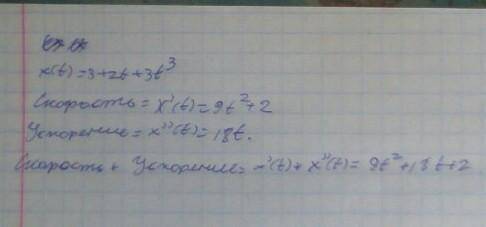 x(t)=3+2t+3t³
Скорость = x'(t)=9t²+2
Ускорение = x''(t)=18t.
Скорость + Ускорение = x'(t)+x''(t)= 9t²+18t+2